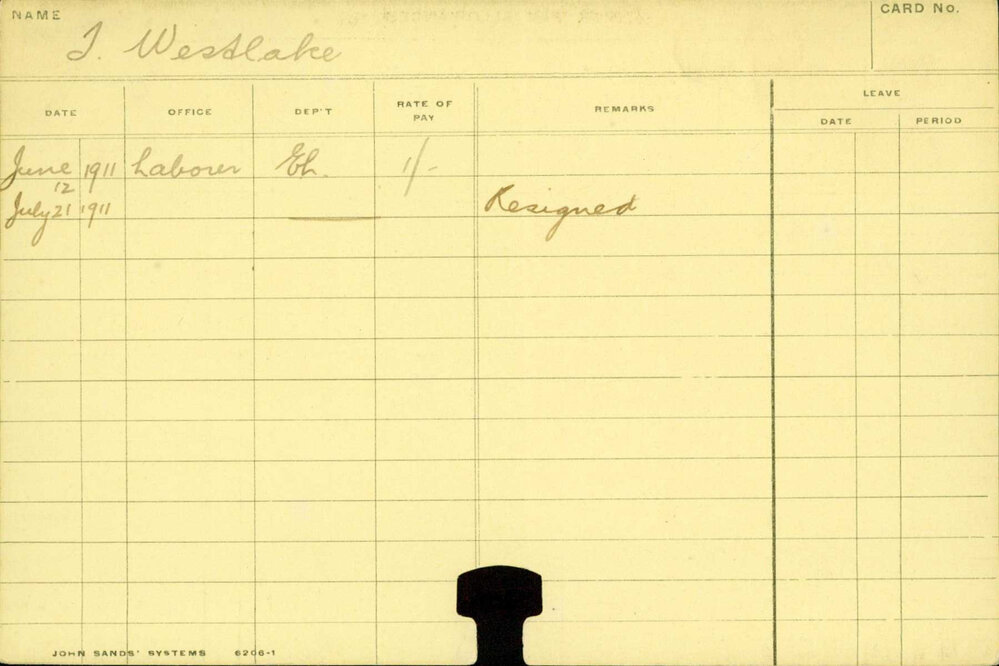 NAME
J. Westlake
CARD No.
DATE OFFICE DEP'T RATE OF PAY REMARKS LEAVE
DATE PERIOD
June 12 1911 Laborer Eh. 1/-
July 21 1911 Resigned
JOHN SANDS' SYSTEMS 6206-1